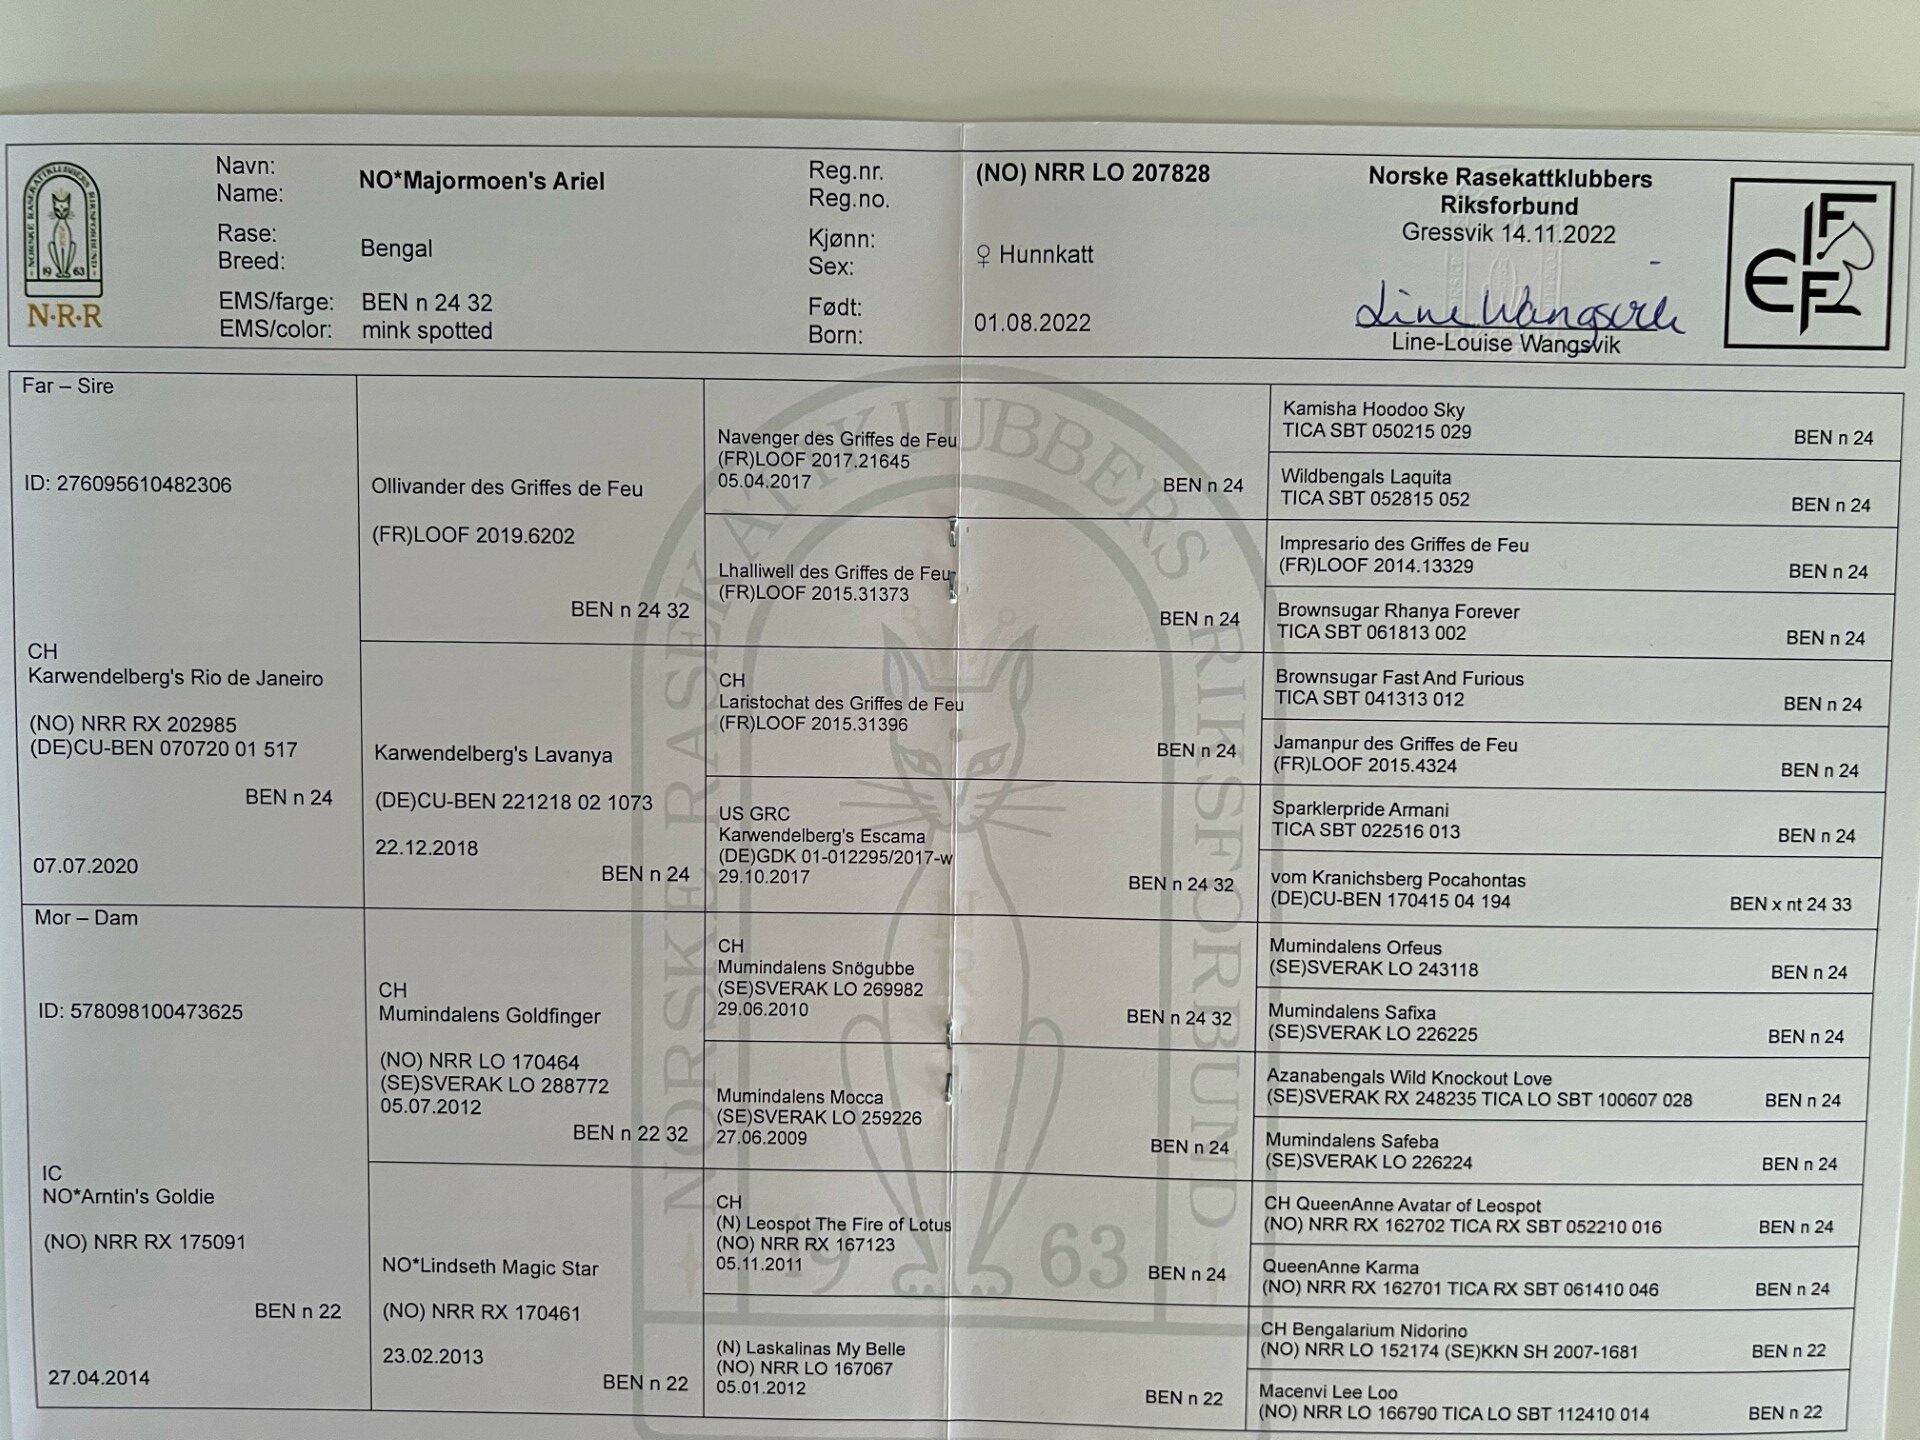 NORSKE RASEKATTKLUBBERS RIKSFORBUND
19 63
N·R·R
Navn:
Name:
NO*Majormoen's Ariel
Rase:
Breed:
Bengal
EMS/farge:
EMS/color:
BEN n 24 32
mink spotted
Reg.nr.
Reg.no.
(NO) NRR LO 207828
Kjønn:
Sex:
♀ Hunnkatt
Født:
Born:
01.08.2022
Norske Rasekattklubbers
Riksforbund
Gressvik 14.11.2022
Line Wangsvik
Line-Louise Wangsvik
FIFe
Far – Sire
ID: 276095610482306
CH
Karwendelberg's Rio de Janeiro
(NO) NRR RX 202985
(DE)CU-BEN 070720 01 517
BEN n 24
07.07.2020
Mor – Dam
ID: 578098100473625
IC
NO*Arntin's Goldie
(NO) NRR RX 175091
BEN n 22
27.04.2014
Ollivander des Griffes de Feu
(FR)LOOF 2019.6202
BEN n 24 32
Karwendelberg's Lavanya
(DE)CU-BEN 221218 02 1073
22.12.2018
BEN n 24
CH
Mumindalens Goldfinger
(NO) NRR LO 170464
(SE)SVERAK LO 288772
05.07.2012
BEN n 22 32
NO*Lindseth Magic Star
(NO) NRR RX 170461
23.02.2013
BEN n 22
Navenger des Griffes de Feu
(FR)LOOF 2017.21645
05.04.2017
BEN n 24
Lhalliwell des Griffes de Feu
(FR)LOOF 2015.31373
BEN n 24
CH
Laristochat des Griffes de Feu
(FR)LOOF 2015.31396
BEN n 24
US GRC
Karwendelberg's Escama
(DE)GDK 01-012295/2017-w
29.10.2017
BEN n 24 32
CH
Mumindalens Snögubbe
(SE)SVERAK LO 269982
29.06.2010
BEN n 24 32
Mumindalens Mocca
(SE)SVERAK LO 259226
27.06.2009
BEN n 24
CH
(N) Leospot The Fire of Lotus
(NO) NRR RX 167123
05.11.2011
BEN n 24
(N) Laskalinas My Belle
(NO) NRR LO 167067
05.01.2012
BEN n 22
Kamisha Hoodoo Sky
TICA SBT 050215 029
BEN n 24
Wildbengals Laquita
TICA SBT 052815 052
BEN n 24
Impresario des Griffes de Feu
(FR)LOOF 2014.13329
BEN n 24
Brownsugar Rhanya Forever
TICA SBT 061813 002
BEN n 24
Brownsugar Fast And Furious
TICA SBT 041313 012
BEN n 24
Jamanpur des Griffes de Feu
(FR)LOOF 2015.4324
BEN n 24
Sparklerpride Armani
TICA SBT 022516 013
BEN n 24
vom Kranichsberg Pocahontas
(DE)CU-BEN 170415 04 194
BEN x nt 24 33
Mumindalens Orfeus
(SE)SVERAK LO 243118
BEN n 24
Mumindalens Safixa
(SE)SVERAK LO 226225
BEN n 24
Azanabengals Wild Knockout Love
(SE)SVERAK RX 248235 TICA LO SBT 100607 028
BEN n 24
Mumindalens Safeba
(SE)SVERAK LO 226224
BEN n 24
CH QueenAnne Avatar of Leospot
(NO) NRR RX 162702 TICA RX SBT 052210 016
BEN n 24
QueenAnne Karma
(NO) NRR RX 162701 TICA RX SBT 061410 046
BEN n 24
CH Bengalarium Nidorino
(NO) NRR LO 152174 (SE)KKN SH 2007-1681
BEN n 22
Macenvi Lee Loo
(NO) NRR LO 166790 TICA LO SBT 112410 014
BEN n 22
NORSKE RASEKATTKLUBBERS RIKSFORBUND
NRR
19 63